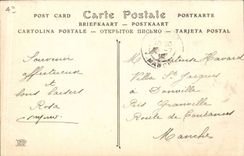 POST CARD Carte Postale POSTKARTE
BRIEFKAART - POSTKAART
CARTOLINA POSTALE - ОТКРЫТОЕ ПИСЬМО - TARJETA POSTAL
Souvenir
affectueux et
bons baisers
Rosa
Havard
Villa St Jacques
à Donville
Près Granville
Route de Coutances
Manche